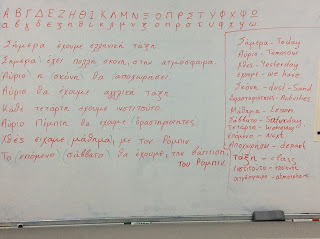 Α Β Γ Δ Ε Ζ Η Θ Ι Κ Λ Μ Ν Ξ Ο Π Ρ Σ Τ Υ Φ Χ Ψ Ω
α β γ δ ε ζ η θ ι κ λ μ ν ξ ο π ρ σ τ υ φ χ ψ ω
Σήμερα έχουμε ελληνική τάξη.
Σήμερα έχει πολλή σκόνη στην ατμόσφαιρα.
Αύριο η σκόνη θα αποχωρήσει.
Αύριο θα έχουμε αγγλικά τάξη
Κάθε τετάρτη έχουμε ινστιτούτο.
Αύριο Πέμπτη θα έχουμε δραστηριότητες
Χθές είχαμε μάθημα με τον Ρόμπιν.
Το επόμενο σάββατο θα έχουμε την βάπτιση
του Ρόμπιν.
Σήμερα - Today
Αύριο - Tomorrow
Χθες - Yesterday
έχουμε - we have
Σκόνη - dust - Sand
δραστηριότητες - Activities
Μάθημα - Lesson
Σάββατο - Saturday
Τετάρτη - Wednesday
Επόμενο - Next
Αποχωρήσει - depart
τάξη - class
Ινστιτούτο -
ατμόσφαιρα - atmosphere